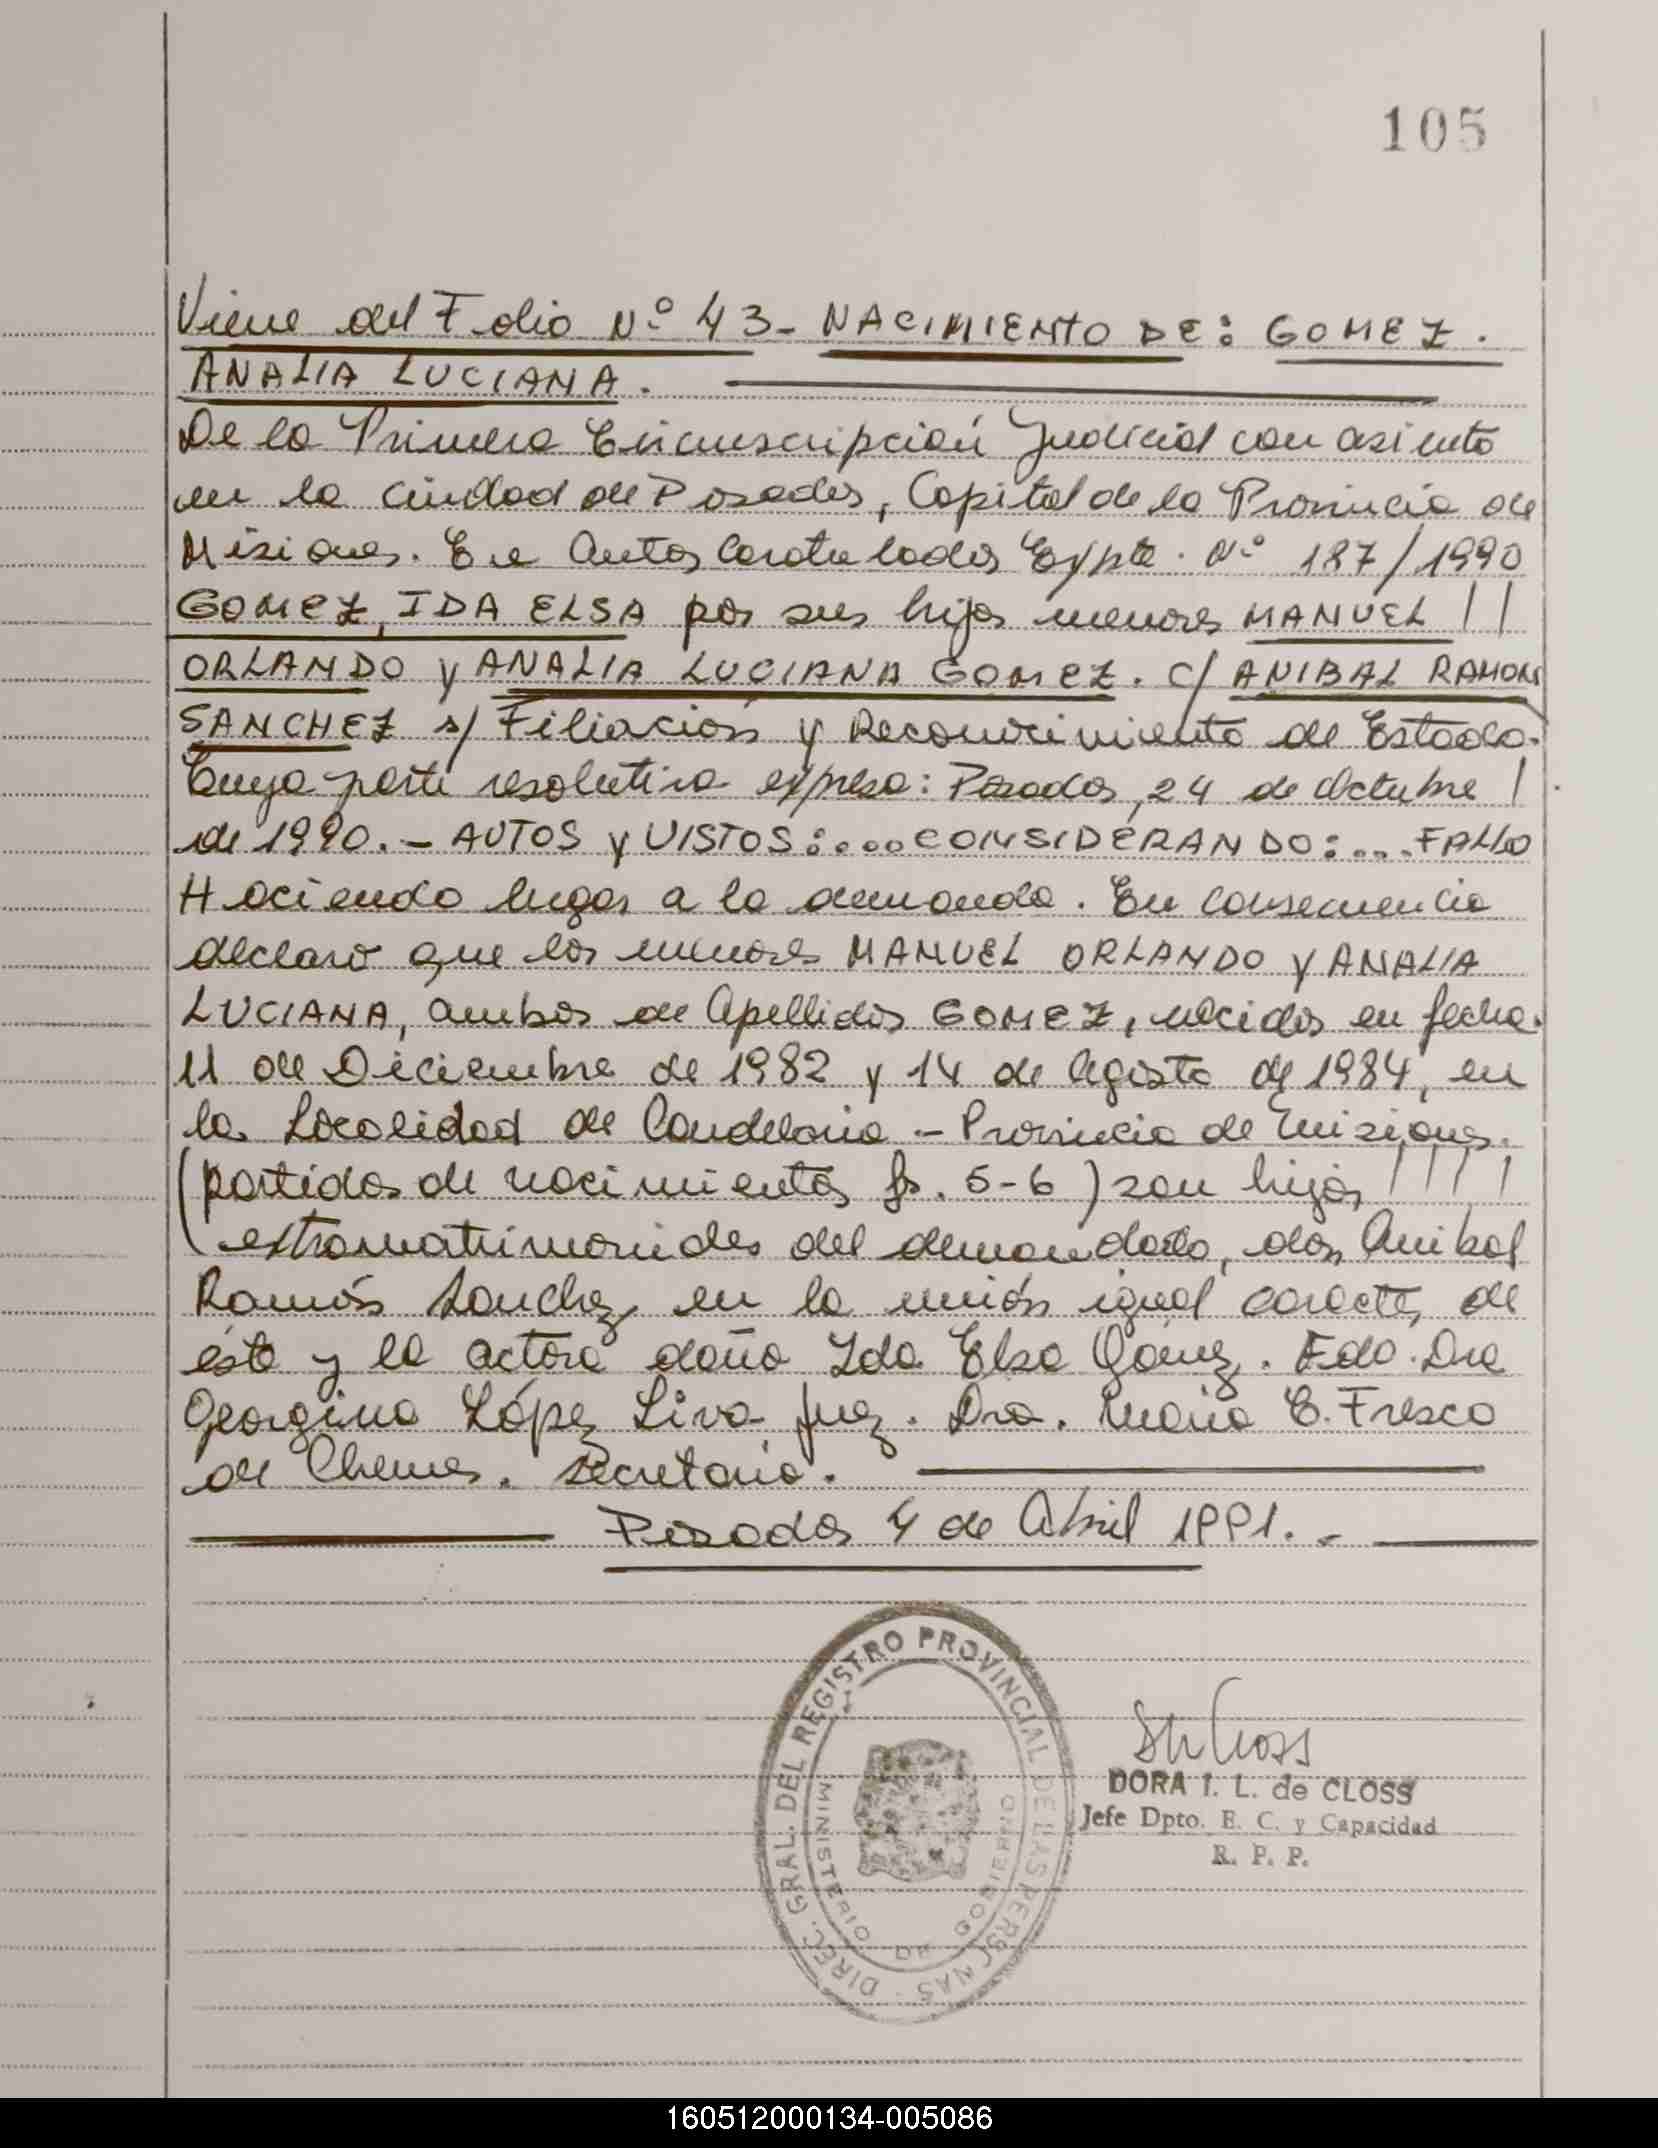 105
Viene del Folio Nº 43- NACIMIENTO DE: GOMEZ.
ANALIA LUCIANA.
De la Primera Circunscripción Judicial con asiento
en la ciudad de Posadas, Capital de la Provincia de
Misiones. En Autos Caratulados Expte. Nº 187/1990
GOMEZ, IDA ELSA por sus hijos menores MANUEL
ORLANDO y ANALIA LUCIANA GOMEZ. c/ ANIBAL RAMON
SANCHEZ s/ Filiación y Reconocimiento de Estado.
Cuya parte resolutiva expresa: Posadas, 24 de Octubre
de 1990.- AUTOS y VISTOS:....CONSIDERANDO:... FALLO
Haciendo lugar a la demanda. En consecuencia
declaro que los menores MANUEL ORLANDO y ANALIA
LUCIANA, ambos de Apellidos GOMEZ, nacidos en fecha
11 de Diciembre de 1982 y 14 de Agosto de 1984, en
la Localidad de Candelaria - Provincia de Misiones.
(partidas de nacimientos fs. 5-6) son hijos
extramatrimoniales del demandado, don Anibal
Ramón Sanchez, en la unión igual caracter, de
ésta y la actora doña Ida Elsa Gómez. Fdo. Dra
Georgina López Liva Juez. Dra. María E. Fresco
de Chemes. Secretaria.
Posadas 4 de Abril 1991.-
DIREC. GRAL. DEL REGISTRO PROVINCIAL DE LAS PERSONAS
MINISTERIO DE GOBIERNO
DORA I. L. de CLOSS
Jefe Dpto. E. C. y Capacidad
R. P. P.
160512000134-005086